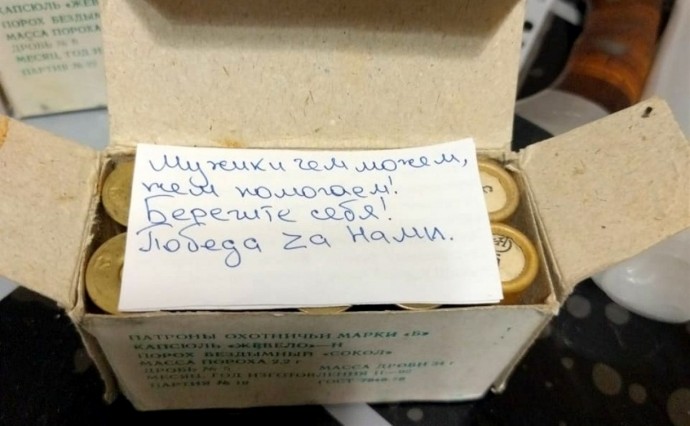 КАПСЮЛЬ «ЖЕВ
ПОРОХ БЕЗДЫМ
МАССА ПОРОХА
ДРОБЬ №
МЕСЯЦ, ГОД И
ПАРТИЯ №
Мужики чем можем,
тем помогаем!
Берегите себя!
Победа Zа Нами.
ПАТРОНЫ ОХОТНИЧЬИ МАРКИ «Б»
КАПСЮЛЬ «ЖЕВЕЛО»—Н
ПОРОХ БЕЗДЫМНЫЙ «СОКОЛ»
МАССА ПОРОХА 2,2 г
ДРОБЬ № МАССА ДРОБИ
МЕСЯЦ, ГОД ИЗГОТОВЛЕНИЯ
ПАРТИЯ № ГОСТ